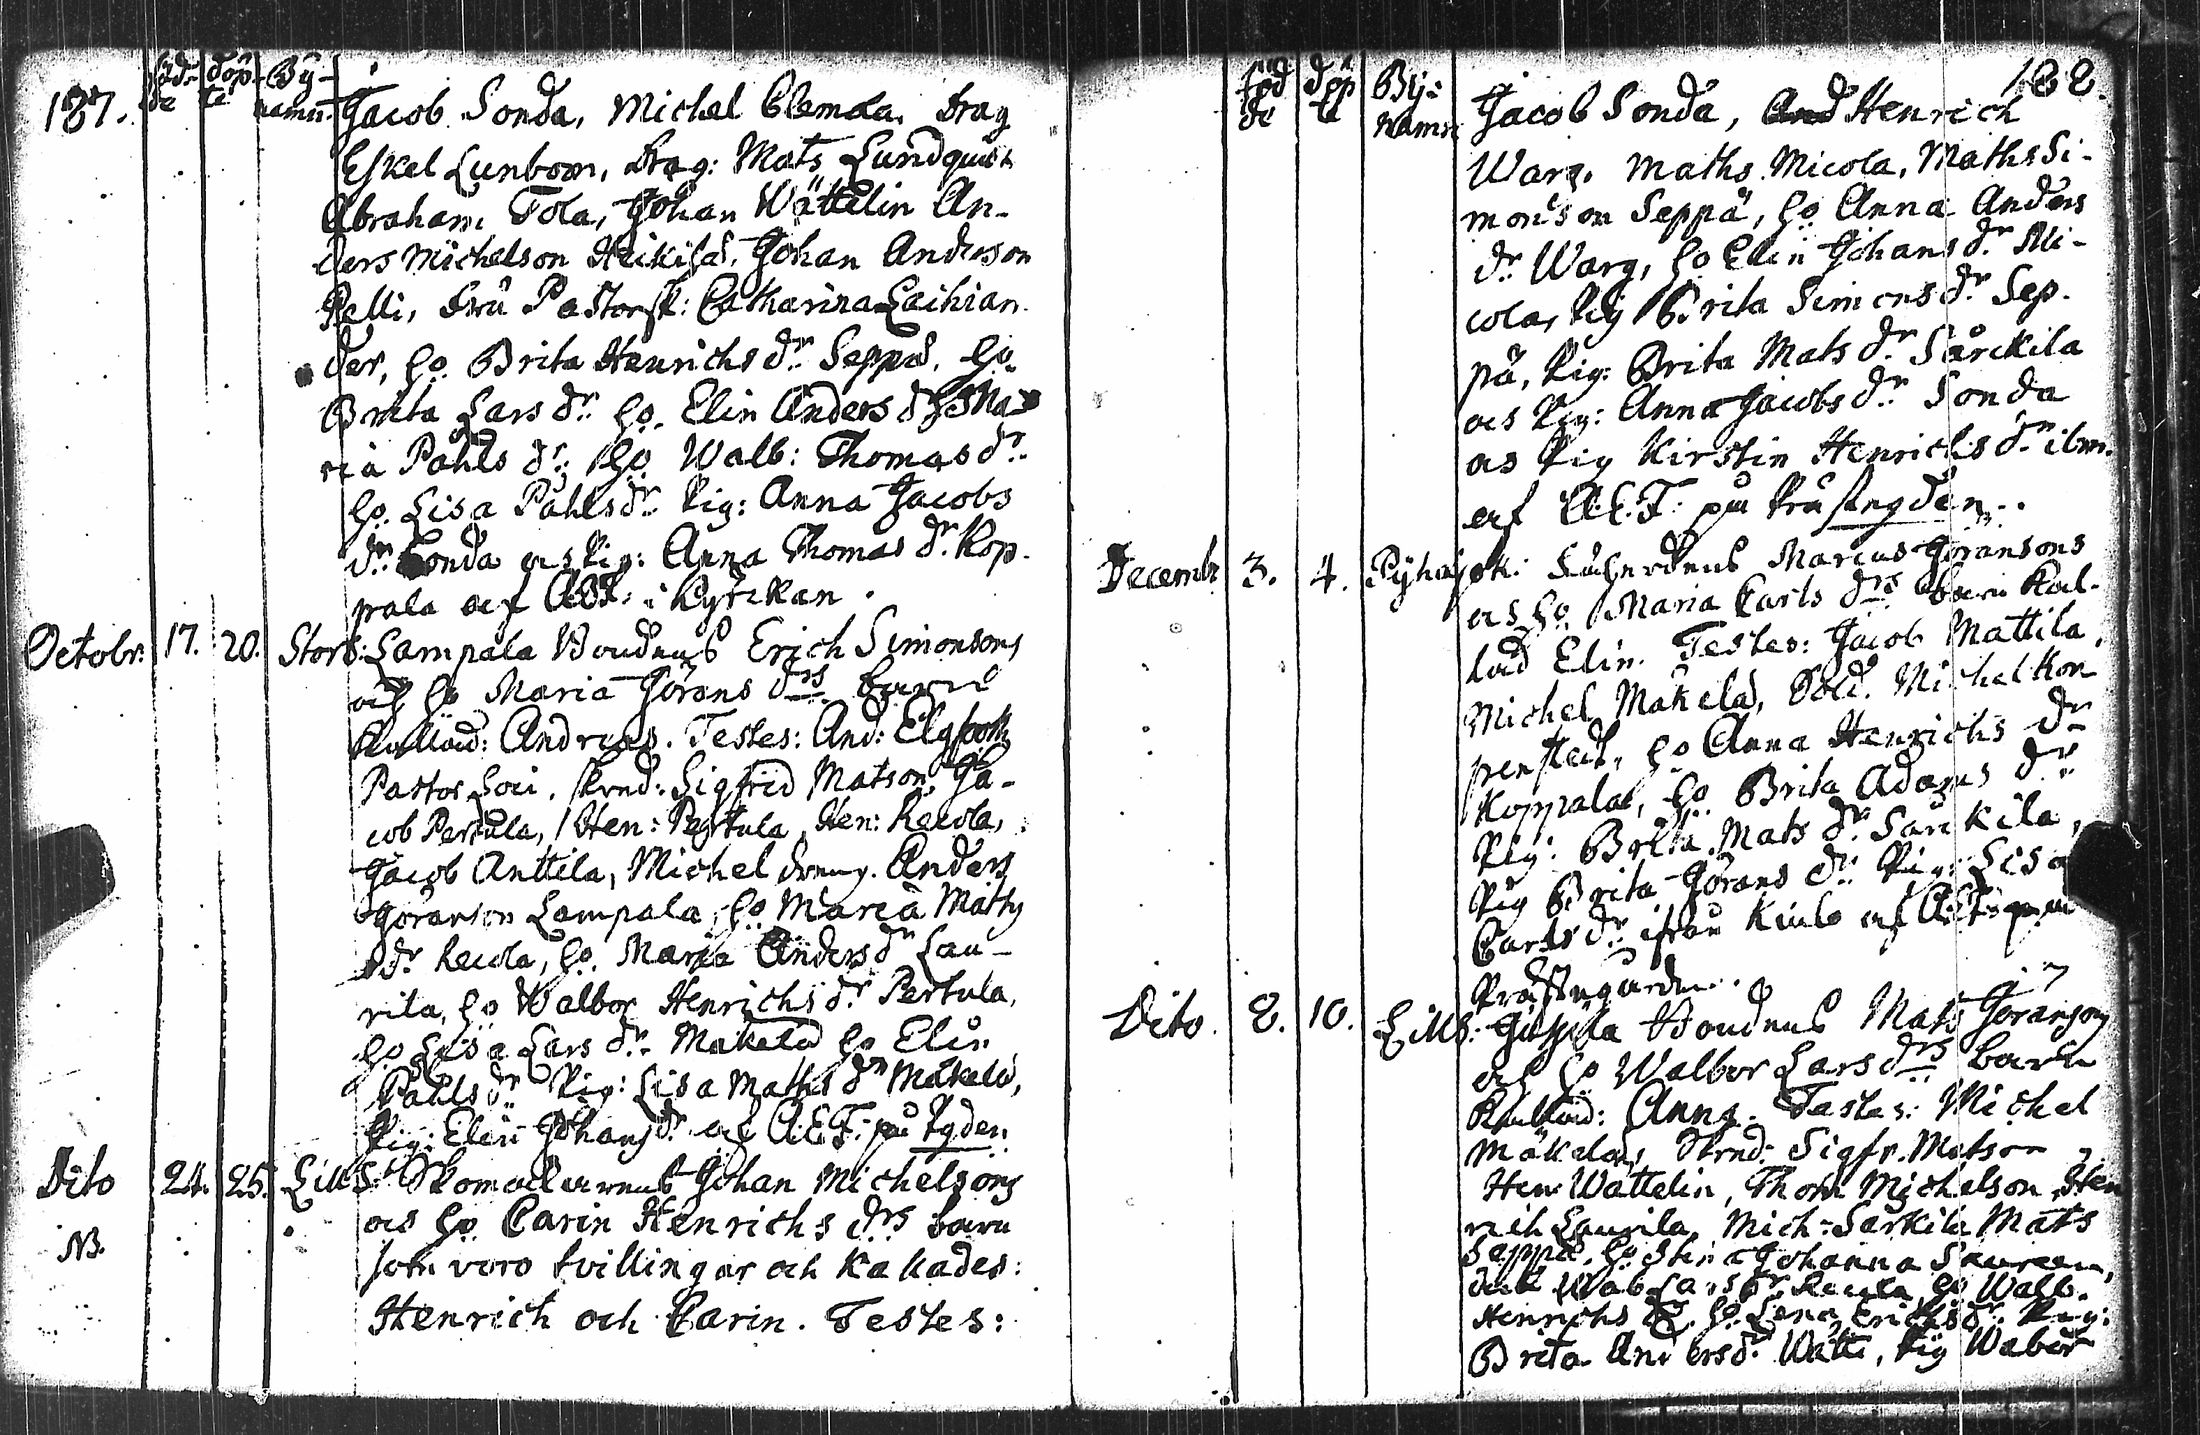 187.
föd- döp- By-
de te namn.
Jacob Sonda, Michel Clemola, Drag
Eskel Lunbom, Drag: Mats Lundquist
Abraham Tola, Johan Wättelin An-
ders Michelson Heikilä, Johan Anderson
Pelli, Fru Pastorsk: Catharina Laihian
der, ho. Brita Henrichs dr. Seppä, ho.
Brita Lars dr. ho. Elin Anders dr. Ma
ria Påhls dr. ho. Walb: Thomas dr.
ho. Lisa Påhls dr. Pig: Anna Jacobs
dr. Sonda ocs Pig: Anna Thomas dr. Kop-
pala af i Kyrckan.
Octobr: 17. 20. Storb: Lampala Bondens Erich Simonsons
och ho Maria Görans drs. barn
Kallad: Andreas. Testes: And:
Pastor Loci, Sigfrid Matson, Ja-
cob Pertula, Hen: Pertula, Hen: Recola,
Jacob Anttila, Michel dreng. Anders
Göranson Lampala, ho Maria Maths
dr. Recola, ho. Maria Anders dr Lau-
rila, ho Walbor Henrichs dr. Pertula,
ho Lisa Lars dr. Mäkelä ho Elin
Påhls dr Pig: Lisa Maths dr Mäkelä,
Pig: Elin Johans dr. af A.E.F. på
Dito 24. 25. Lills: Skomackarens Johan Michelsons
NB. ocs ho Carin Henrichs drs barn
som voro tvillingar och Kallades:
Henrich och Carin. Testes:
188.
föd döp By:
de te namn
Jacob Sonda, And Henrich
Warg, Maths Micola, Maths Si-
monson Seppä, ho Anna Anders
dr. Warg, ho Elin Johans dr. Mi-
cola, Pig Brita Simons dr. Sep-
pä, Pig: Brita Mats dr. Särckila
ocs Pig: Anna Jacobs dr. Sonda
ocs Pig Kirstin Henrichs dr. ibm.
af A.E.F. på
Decembr 3. 4. Pyhäjok: Marcus Göransons
ocs ho. Maria Carls drs barn Kal-
lad Elin. Testes: Jacob Mattila,
Michel Mäkelä, Sold. Michel Kop
penstedt, ho Anna Henrichs dr
Koppala, ho Brita Adams dr.
Pig: Brita Mats dr. Särckila,
Pig Brita Görans dr. Pig: Lisa
Carls dr. ifrån Kiulo af
Prästegården.
Dito. 8. 10. Lills: Bondens Mats Göransons
och ho Walbor Lars drs barn
Kallad: Anna. Testes: Michel
Mäkelä, Sigfr. Matson
Hen Wattelin, Thom Michelson, Hen
rich Laurila, Mich: Särkila Mats
Seppä, ho Stina Johanna
Walb Lars dr. Recola, ho Walb.
Henrichs dr. ho. Lena Erichs dr. Pig:
Brita Anders dr. Watti, Pig Walbor